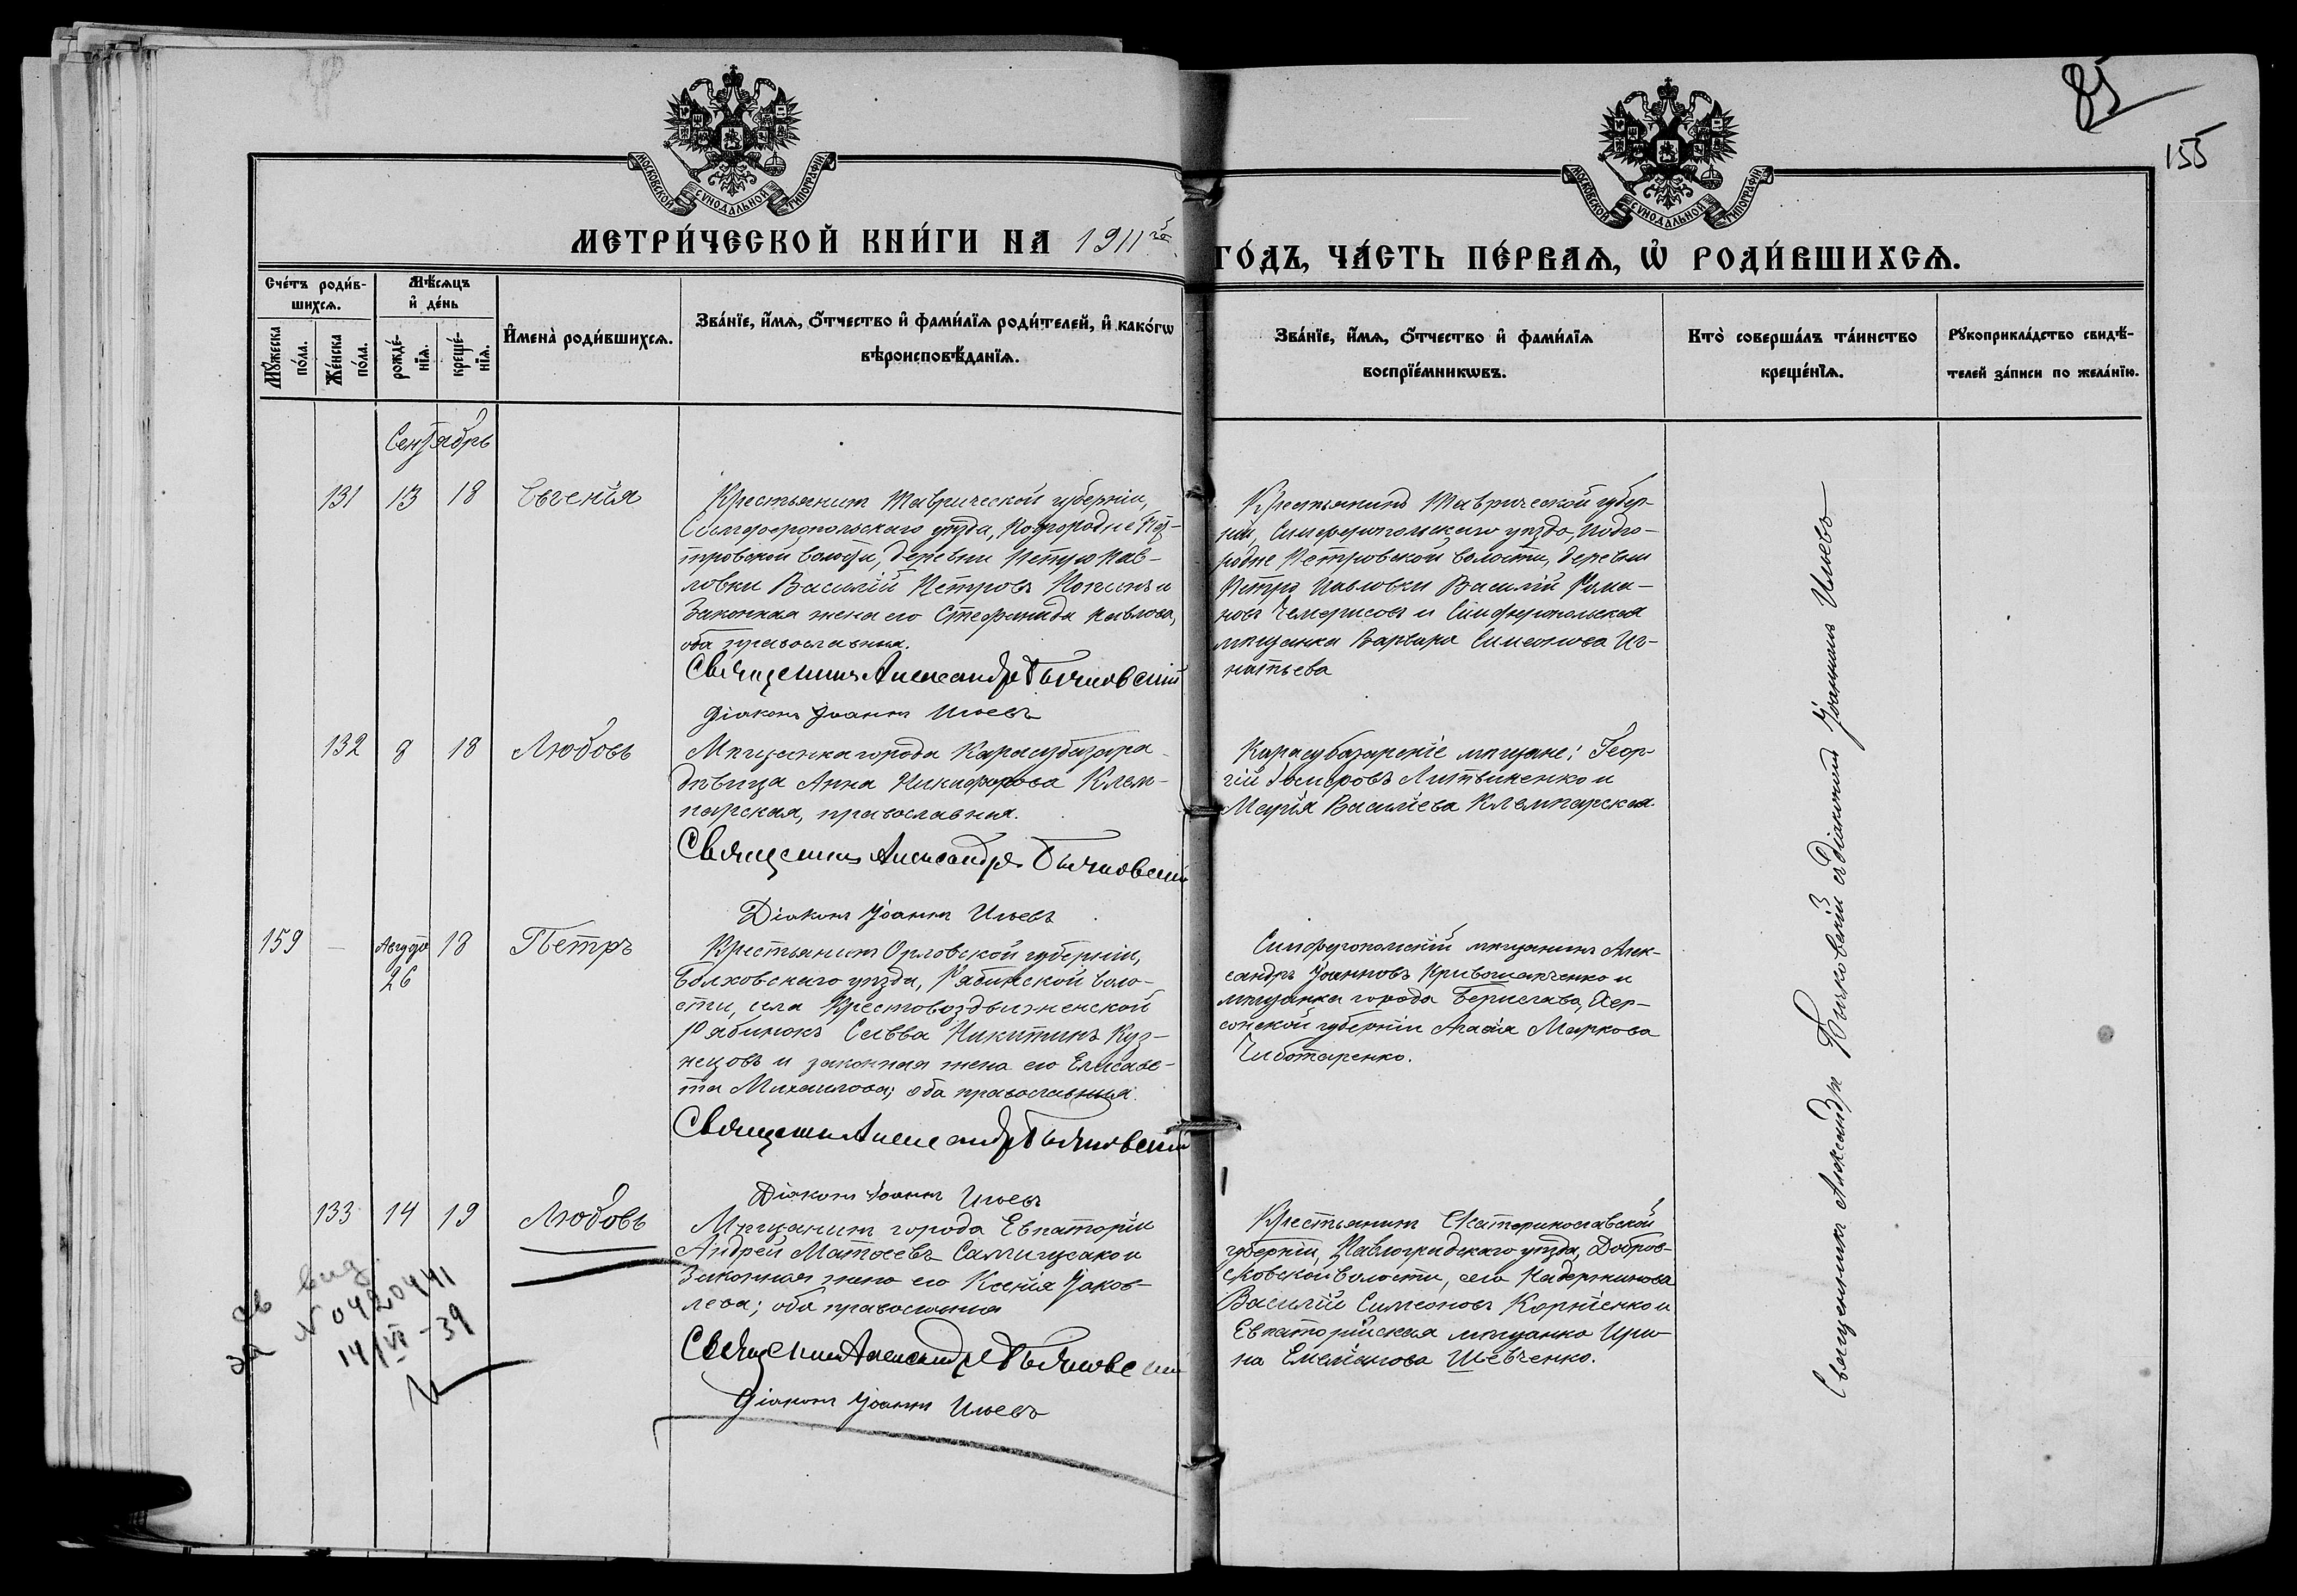 85
155
МОСКОВСКОЙ СѴНОДАЛЬНОЙ ТИПОГРАФІИ
МОСКОВСКОЙ СѴНОДАЛЬНОЙ ТИПОГРАФІИ
МЕТРИ́ЧЕСКОЙ КНИ́ГИ НА 1911 го
ГО́ДЪ, ЧА́СТЬ ПЕ́РВАѦ, Ѡ҆ РОДИ́ВШИХСѦ.
Сче́тъ роди́в-
шихсѧ.
Мꙋ́жеска
по́ла.
Же́нска
по́ла.
Мѣ́сѧцъ
и҆ де́нь
рожде́-
нїѧ.
креще́-
нїѧ.
И҆мена̀ роди́вшихсѧ.
Зва́нїе, и҆́мѧ, ѻ҆́тчество и҆ фами́лїѧ роди́телей, и҆ како́гѡ
вѣроисповѣ́данїѧ.
Зва́нїе, и҆́мѧ, ѻ҆́тчество и҆ фами́лїѧ
воспрїе́мникѡвъ.
Кто̀ соверша́лъ та́инство
креще́нїѧ.
Рꙋкоприкла́дство свидѣ́-
телей за́писи по жела́нїю.
Сентябрь
131 13 18 Евгенія
Крестьянинъ Таврической губерніи,
Симферопольскаго уѣзда, Подгородне Пе-
тровской волости, деревни Петро Пав-
ловки Василій Петровъ Копинъ и
законная жена его Стефанида Павлова,
оба православные.
Священникъ Александръ Бычковскій
Діаконъ Іоаннъ Ильевъ
Крестьянинъ Таврической губер-
ніи, Симферопольскаго уѣзда, Подго-
родне Петровской волости, деревни
Петро Павловки Василій Рома-
новъ Чемерисовъ и Симферопольская
мѣщанка Варвара Симеонова Иг-
натьева
132 8 18 Любовь
Мѣщанка города Карасубазара
дѣвица Анна Никифорова Клем-
парская, православная.
Священникъ Александръ Бычковскій
Діаконъ Іоаннъ Ильевъ
Карасубазарскіе мѣщане: Геор-
гій Литвиненко и
Марія Василіева Клемпарская.
159 — Августъ 26 18 Петръ
Крестьянинъ Орловской губерніи,
Болховскаго уѣзда, Рябинской воло-
сти, села Крестовоздвиженской
Рябинокъ Савва Никитинъ Куз-
нецовъ и законная жена его Елисаве-
та Михаилова; оба православные.
Священникъ Александръ Бычковскій
Діаконъ Іоаннъ Ильевъ
Симферопольскій мѣщанинъ Алек-
сандръ Іоанновъ Кривошапченко и
мѣщанка города Берислава, Хер-
сонской губерніи Агафія Маркова
Чиботаренко.
133 14 19 Любовь
Мѣщанинъ города Евпаторіи
Андрей Матѳеевъ и
законная жена его Ксенія Іаков-
лева; оба православные
Священникъ Александръ Бычковскій
Діаконъ Іоаннъ Ильевъ
Крестьянинъ Екатеринославской
губерніи, Павлоградскаго уѣзда, Добров-
ской волости, села
Василій Симеоновъ Корніенко и
Евпаторійская мѣщанка Ири-
на Емеліанова Шевченко.
Священникъ Александръ Бычковскій съ діакономъ Іоанномъ Ильевъ
N 0420441
14/VI -39